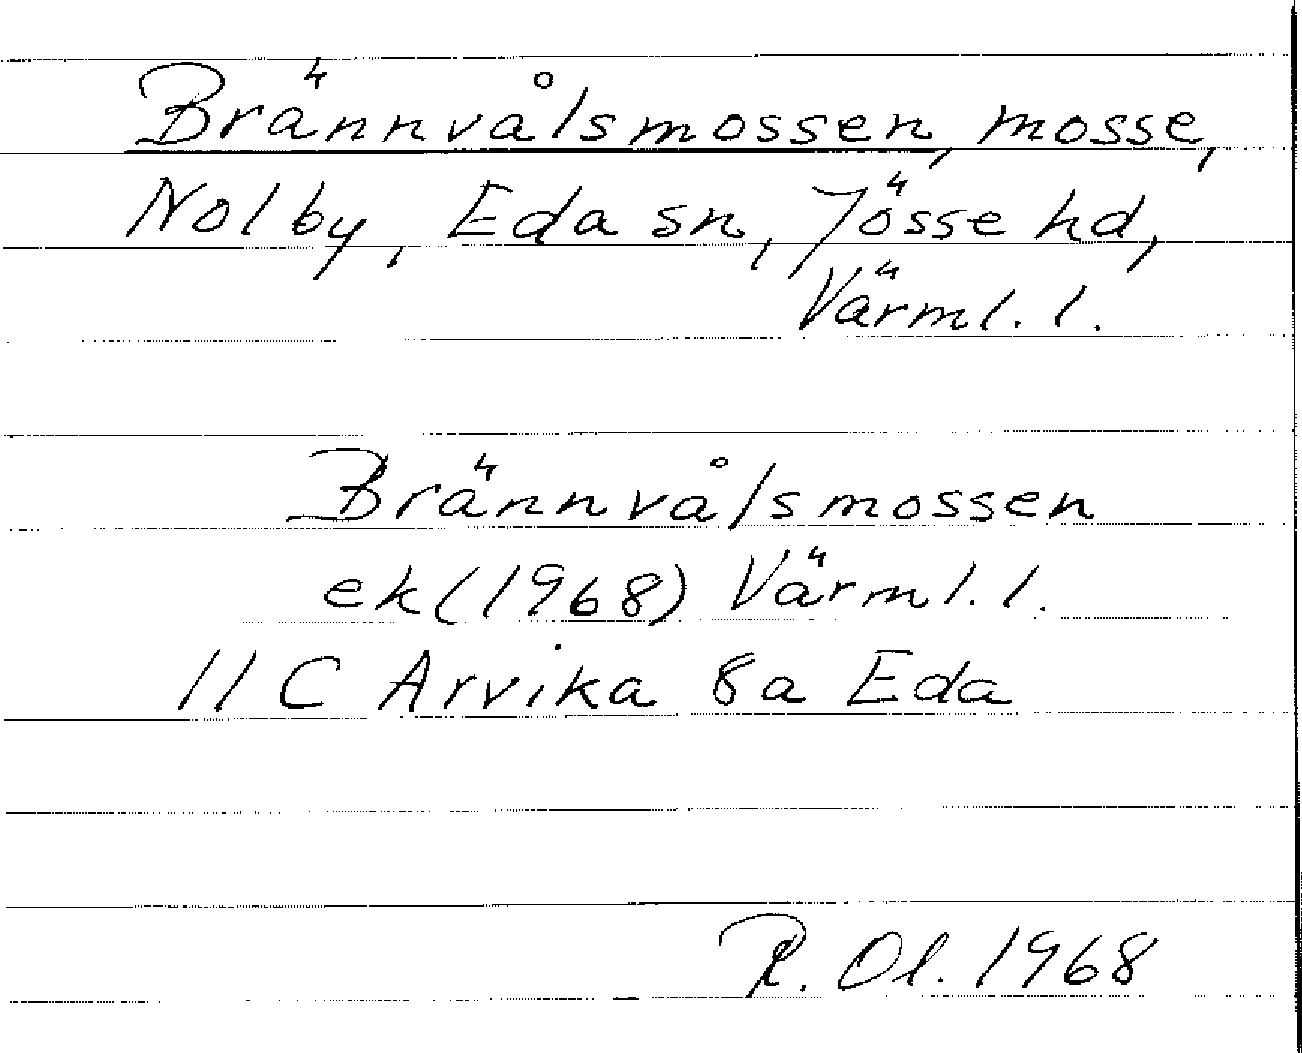 Brännvålsmossen, mosse,
Nolby, Eda sn, Jösse hd,
Värml. l.
Brännvålsmossen
ek (1968) Värml. l.
11 C Arvika 8a Eda
R. Ol. 1968